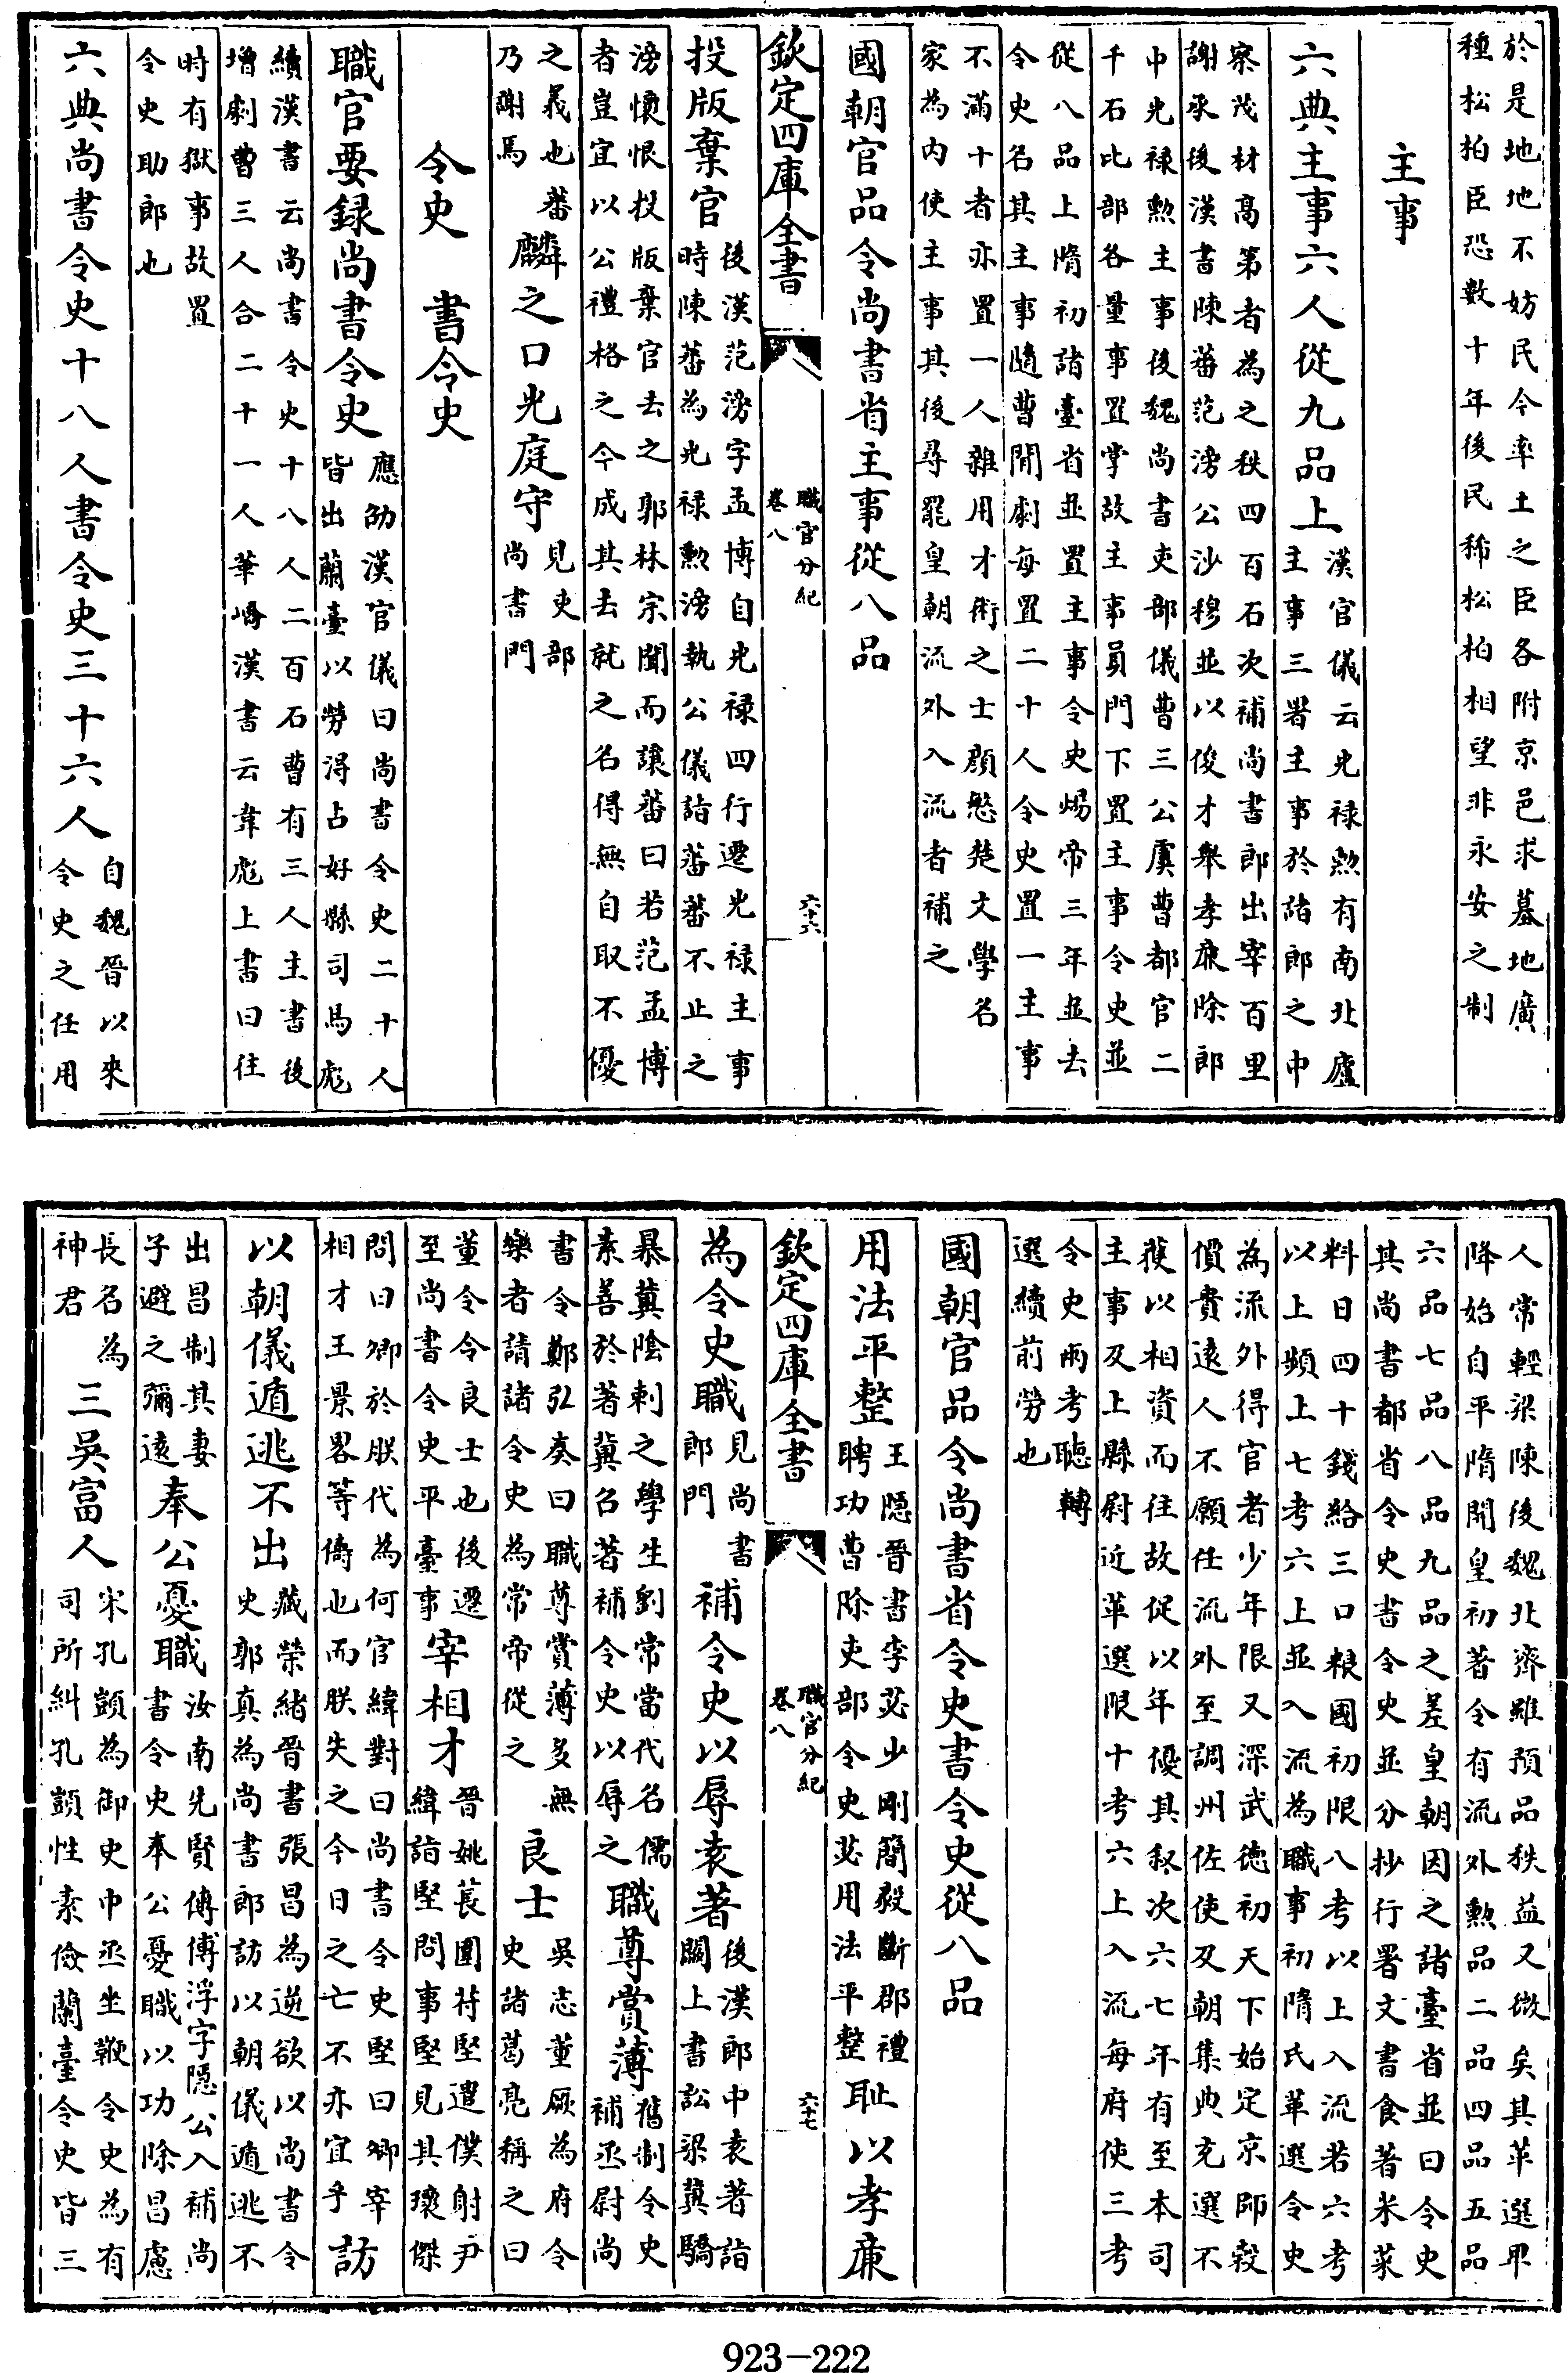 於是地地不妨民今率土之臣各附京邑求墓地廣
種松柏臣恐數十年後民稀松柏相望非永安之制
主事
六典主事六人從九品上
漢官儀云光禄勲有南北廬
主事三署主事於諸郎之中
察茂材高第者為之秩四百石次補尚書郎出宰百里
謝承後漢書陳蕃范滂公沙穆並以俊才舉孝廉除郎
中光禄勲主事後魏尚書吏部儀曹三公虞曹都官二
千石比部各量事置掌故主事員門下置主事令史並
從八品上隋初諸臺省並置主事令史煬帝三年並去
令史名其主事隨曹閒劇每置二十人令史置一主事
不滿十者亦置一人雜用才術之士顔愍楚文學名
家為内使主事其後尋罷皇朝流外入流者補之
國朝官品令尚書省主事從八品
欽定四庫全書
職官分紀
卷八
六十六
投版棄官
後漢范滂字孟博自光禄四行遷光禄主事
時陳蕃為光禄勲滂執公儀詣蕃蕃不止之
滂懷恨投版棄官去之郭林宗聞而讓蕃曰若范孟博
者豈宜以公禮格之今成其去就之名得無自取不優
之義也蕃
乃謝焉
麟之口光庭守
見吏部
尚書門
令史 書令史
職官要録尚書令史
應劭漢官儀曰尚書令史二十人
皆出蘭臺以勞得占好縣司馬彪
續漢書云尚書令史十八人二百石曹有三人主書後
增劇曹三人合二十一人華嶠漢書云韋彪上書曰往
時有獄事故置
令史助郎也
六典尚書令史十八人書令史三十六人
自魏晉以來
令史之任用
人常輕梁陳後魏北齊雖預品秩益又微矣其革選卑
降始自平隋開皇初著令有流外勲品二品四品五品
六品七品八品九品之差皇朝因之諸臺省並曰令史
其尚書都省令史書令史並分抄行署文書食著米菜
料日四十錢給三口粮國初限八考以上入流若六考
以上頻上七考六上並入流為職事初隋氏革選令史
為流外得官者少年限又深武徳初天下始定京師榖
價貴遠人不願任流外至調州佐使及朝集典充選不
獲以相資而往故促以年優其叙次六七年有至本司
主事及上縣尉近革選限十考六上入流每府使三考
令史兩考聽轉
選續前勞也
國朝官品令尚書省令史書令史從八品
用法平整
王隠晉書李苾少剛簡毅斷郡禮
聘功曹除吏部令史苾用法平整
耻以孝廉
欽定四庫全書
職官分紀
卷八
六十七
為令史職
見尚書
郎門
補令史以辱袁著
後漢郎中袁著詣
闕上書訟梁冀驕
暴冀陰刺之學生劉常當代名儒
素善於著冀召著補令史以辱之
職尊賞薄
舊制令史
補丞尉尚
書令鄭弘奏曰職尊賞薄多無
樂者請諸令史為常帝從之
良士
吳志董厥為府令
史諸葛亮稱之曰
董令令良士也後遷
至尚書令史平臺事
宰相才
晉姚萇圍苻堅遣僕射尹
緯詣堅問事堅見其瓌傑
問曰卿於朕代為何官緯對曰尚書令史堅曰卿宰
相才王景畧等儔也而朕失之今日之亡不亦宜乎
訪
以朝儀遁逃不出
臧榮緒晉書張昌為逆欲以尚書令
史郭真為尚書郎訪以朝儀遁逃不
出昌制其妻
子避之彌遠
奉公憂職
汝南先賢傳傅浮字隠公入補尚
書令史奉公憂職以功除昌慮
長名為
神君
三吳富人
宋孔顗為御史中丞坐鞭令史為有
司所糾孔顗性素儉蘭臺令史皆三
923-222